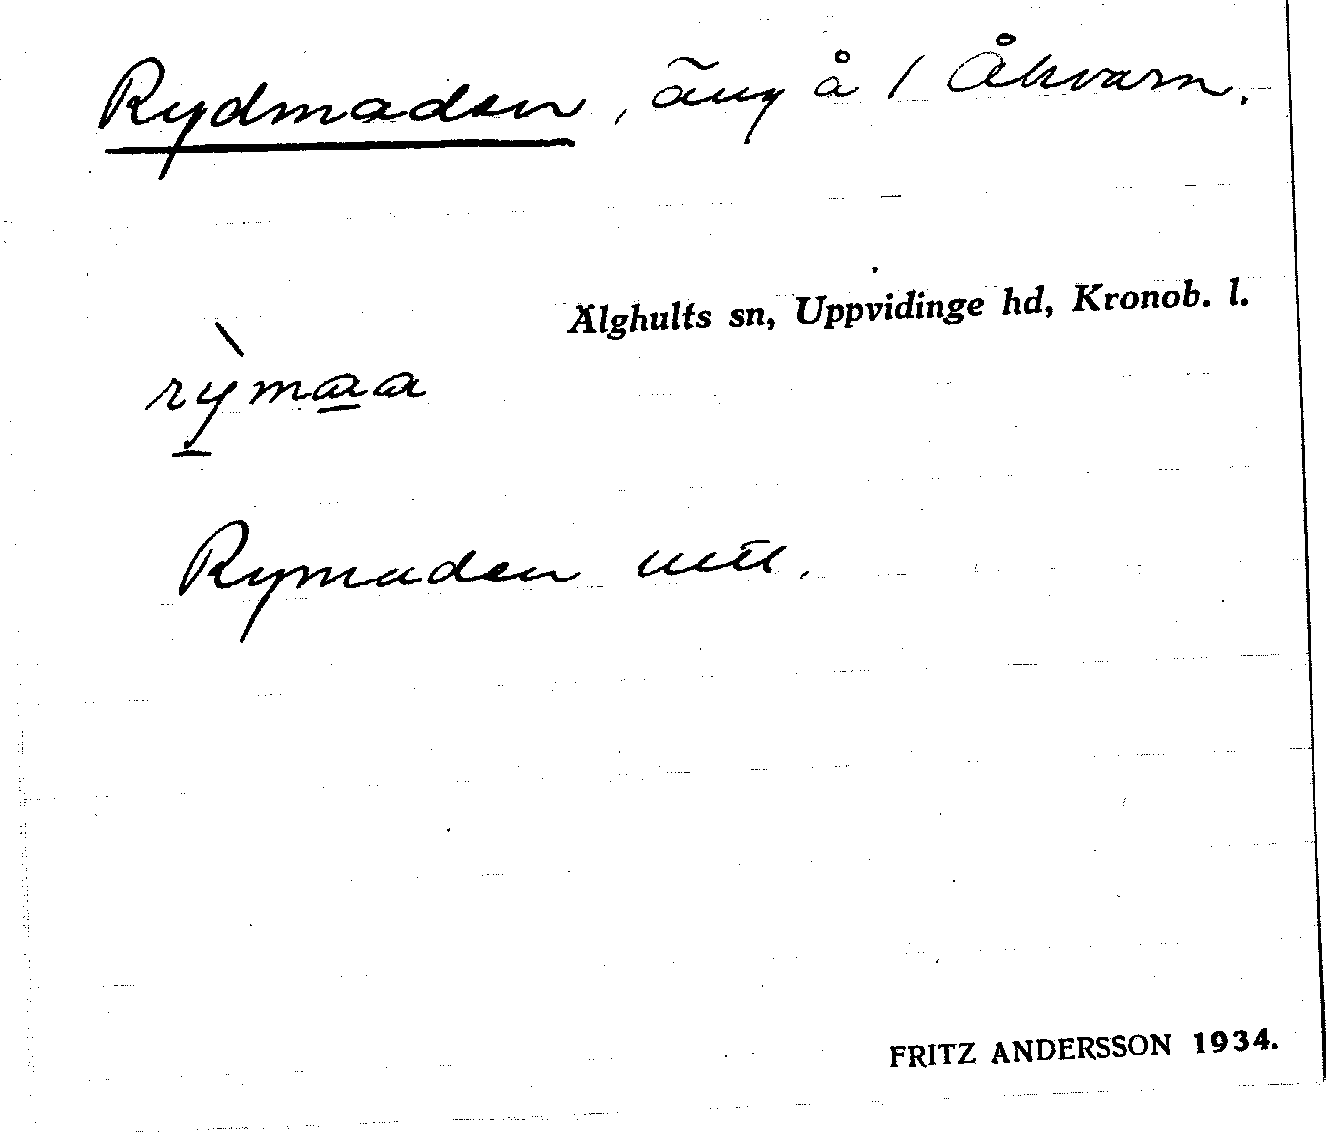 Rydmaden, äng å 1 Åkvarn.
Älghults sn, Uppvidinge hd, Kronob. l.
rỳmaa
Rymaden utt.
FRITZ ANDERSSON 1934.